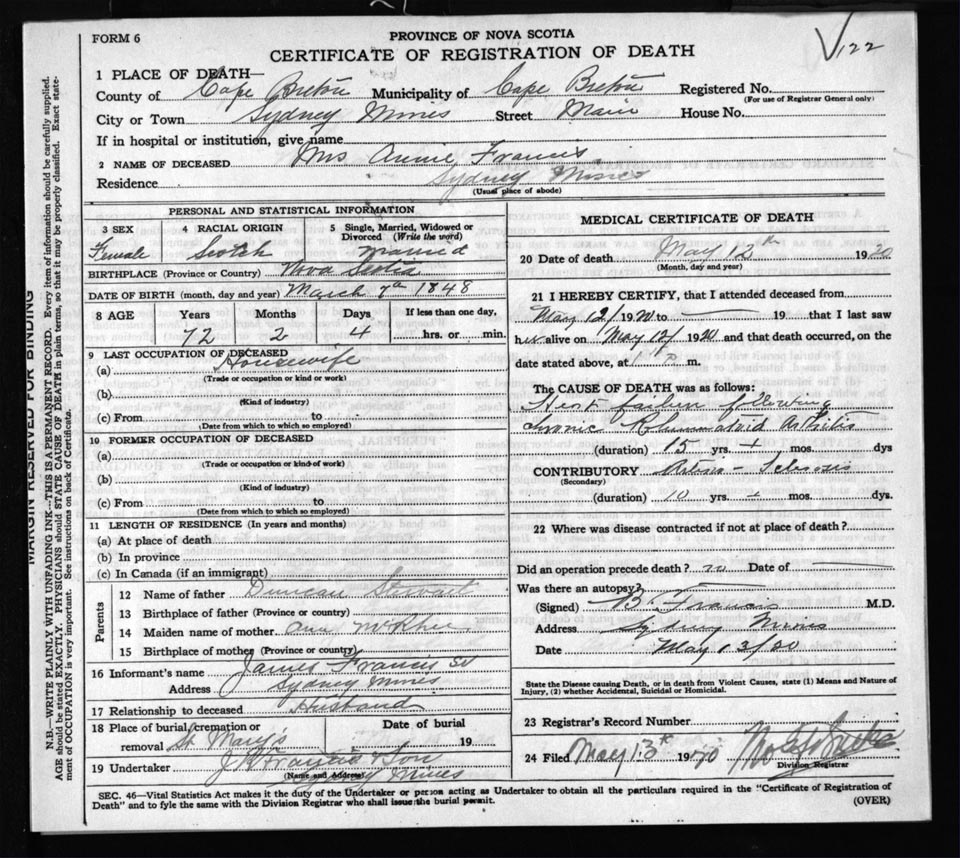 FORM 6
PROVINCE OF NOVA SCOTIA
CERTIFICATE OF REGISTRATION OF DEATH
122
1 PLACE OF DEATH—
County of Cape Breton Municipality of Cape Breton Registered No.
(For use of Registrar General only)
City or Town Sydney Mines Street Main House No.
If in hospital or institution, give name
2 NAME OF DECEASED Mrs Annie Francis
Residence Sydney Mines
(Usual place of abode)
PERSONAL AND STATISTICAL INFORMATION
3 SEX 4 RACIAL ORIGIN 5 Single, Married, Widowed or Divorced (Write the word)
Female Scotch Married
BIRTHPLACE (Province or Country) Nova Scotia
DATE OF BIRTH (month, day and year) March 7th 1848
8 AGE Years Months Days If less than one day,
72 2 4 hrs. or min.
9 LAST OCCUPATION OF DECEASED
(a) Housewife
(Trade or occupation or kind or work)
(b)
(Kind of industry)
(c) From to
(Date from which to which so employed)
10 FORMER OCCUPATION OF DECEASED
(a)
(Trade or occupation or kind of work)
(b)
(Kind of industry)
(c) From to
(Date from which to which so employed)
11 LENGTH OF RESIDENCE (In years and months)
(a) At place of death
(b) In province
(c) In Canada (if an immigrant)
Parents
12 Name of father Duncan Stewart
13 Birthplace of father (Province or country)
14 Maiden name of mother Ann McPhee
15 Birthplace of mother (Province or country)
16 Informant's name James Francis Sr
Address Sydney Mines
17 Relationship to deceased Husband
18 Place of burial, cremation or removal St Mary's
Date of burial 19
19 Undertaker J Francis & Son
(Name and Address) Sydney Mines
MEDICAL CERTIFICATE OF DEATH
20 Date of death May 12th 1920
(Month, day and year)
21 I HEREBY CERTIFY, that I attended deceased from
May 12/ 1920 to — 19 that I last saw
her alive on May 12/ 1920 and that death occurred, on the
date stated above, at 1 P. m.
The CAUSE OF DEATH was as follows:
Heart failure following
chronic Rheumatoid Arthritis
(duration) 15 yrs. + mos. dys
CONTRIBUTORY Arterio-Sclerosis
(Secondary)
(duration) 10 yrs. + mos. dys.
22 Where was disease contracted if not at place of death?
Did an operation precede death? no Date of —
Was there an autopsy? —
(Signed) B. Francis M.D.
Address Sydney Mines
Date May 13/20
State the Disease causing Death, or in death from Violent Causes, state (1) Means and Nature of Injury, (2) whether Accidental, Suicidal or Homicidal.
23 Registrar's Record Number
24 Filed May 13th 1920
Division Registrar
SEC. 46—Vital Statistics Act makes it the duty of the Undertaker or person acting as Undertaker to obtain all the particulars required in the "Certificate of Registration of
Death" and to fyle the same with the Division Registrar who shall issue the burial permit. (OVER)
MARGIN RESERVED FOR BINDING
N.B.—WRITE PLAINLY WITH UNFADING INK—THIS IS A PERMANENT RECORD. Every item of information should be carefully supplied.
AGE should be stated EXACTLY. PHYSICIANS should STATE CAUSE OF DEATH in plain terms, so that it may be properly classified. Exact state-
ment of OCCUPATION is very important. See instructions on back of Certificate.